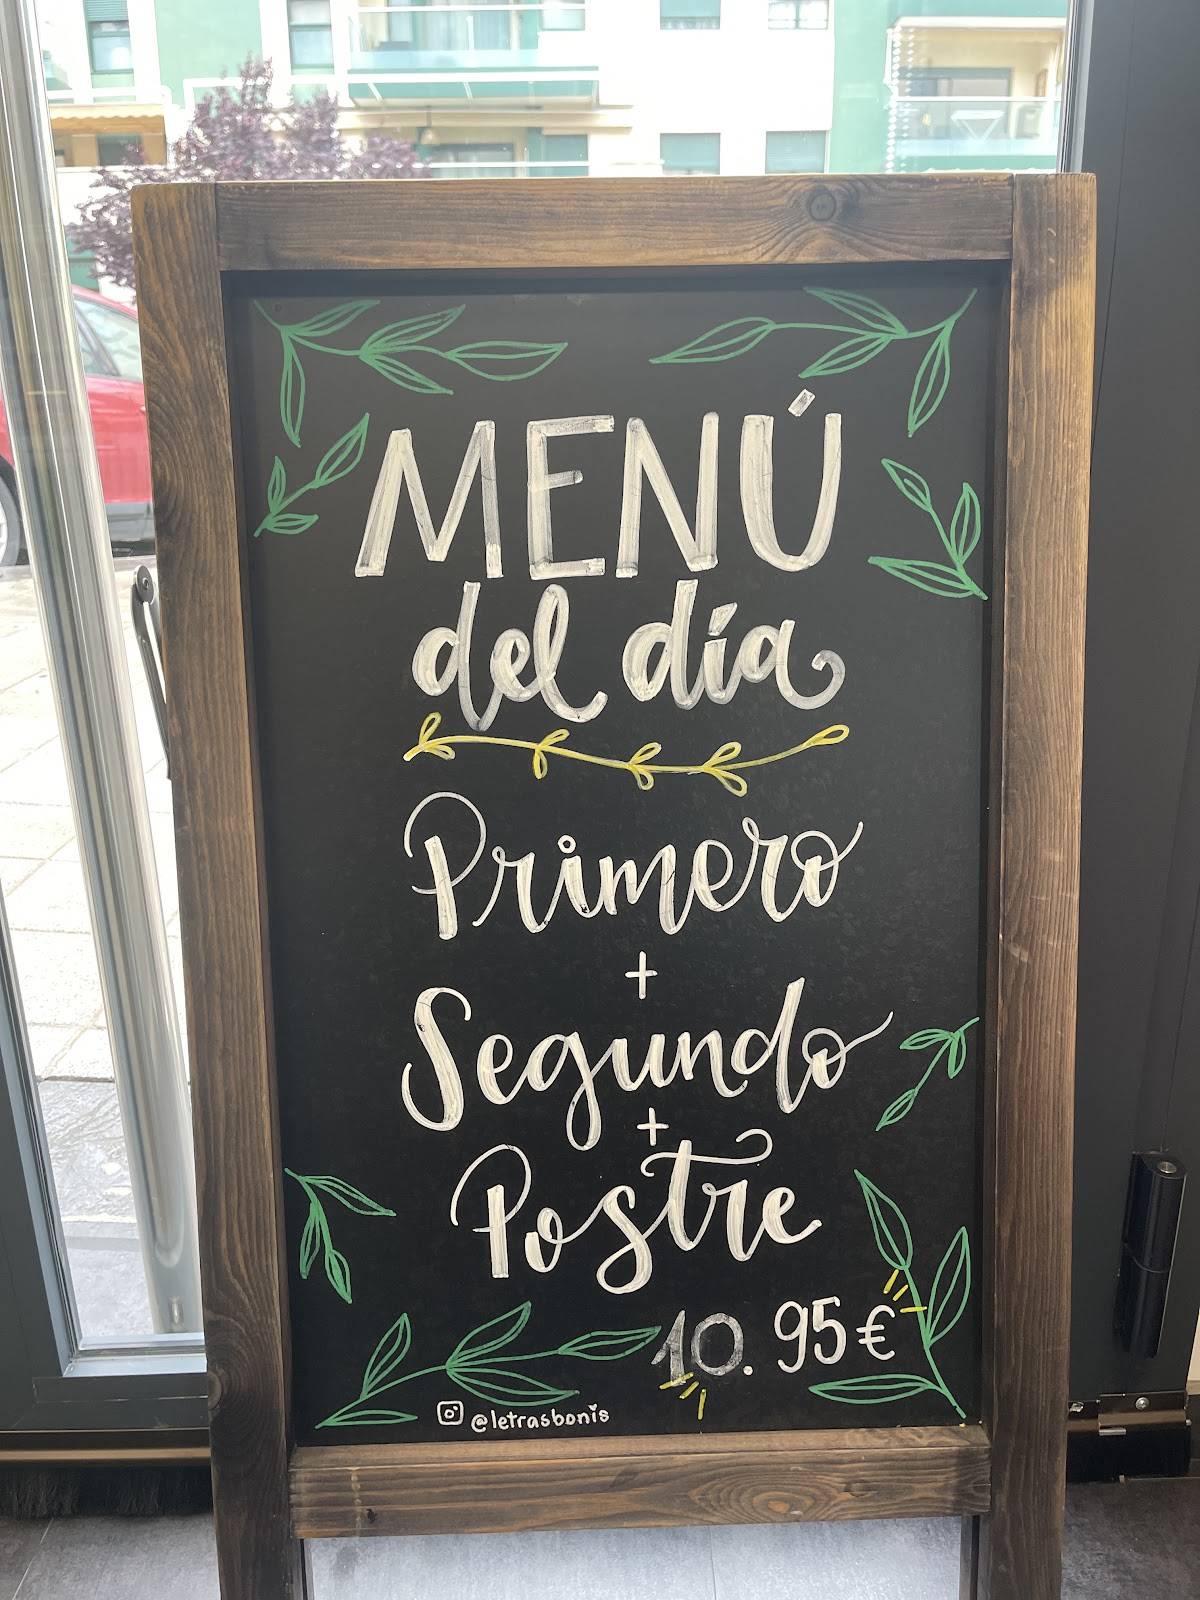 MENÚ
del día
Primero
+
Segundo
+
Postre
10.95€
@letrasbonis